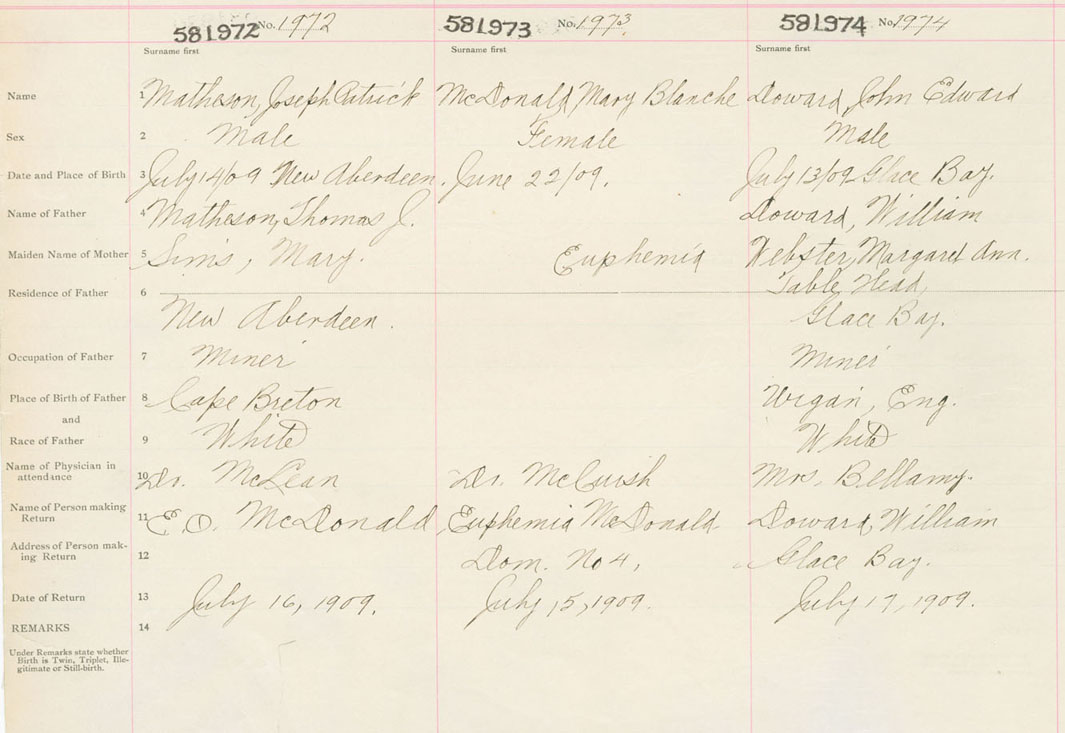 581972 No. 1972 581973 No. 1973 581974 No. 1974
Surname first Surname first Surname first
Name 1 Matheson, Joseph Patrick McDonald, Mary Blanche Doward, John Edward
Sex 2 Male Female Male
Date and Place of Birth 3 July 14/09 New Aberdeen. June 22/09. July 13/09 Glace Bay.
Name of Father 4 Matheson, Thomas J. Doward, William
Maiden Name of Mother 5 Sims, Mary. Euphemia Webster, Margaret Ann.
Residence of Father 6 Table Head,
New Aberdeen. Glace Bay.
Occupation of Father 7 Miner Miner
Place of Birth of Father 8 Cape Breton Wigan, Eng.
and
Race of Father 9 White White
Name of Physician in
attendance 10 Dr. McLean Dr. McCuish Mrs. Bellamy.
Name of Person making
Return 11 E.O. McDonald Euphemia McDonald. Doward, William
Address of Person mak-
ing Return 12 Dom. No 4, Glace Bay.
Date of Return 13 July 16, 1909. July 15, 1909. July 17, 1909.
REMARKS 14
Under Remarks state whether
Birth is Twin, Triplet, Ille-
gitimate or Still-birth.